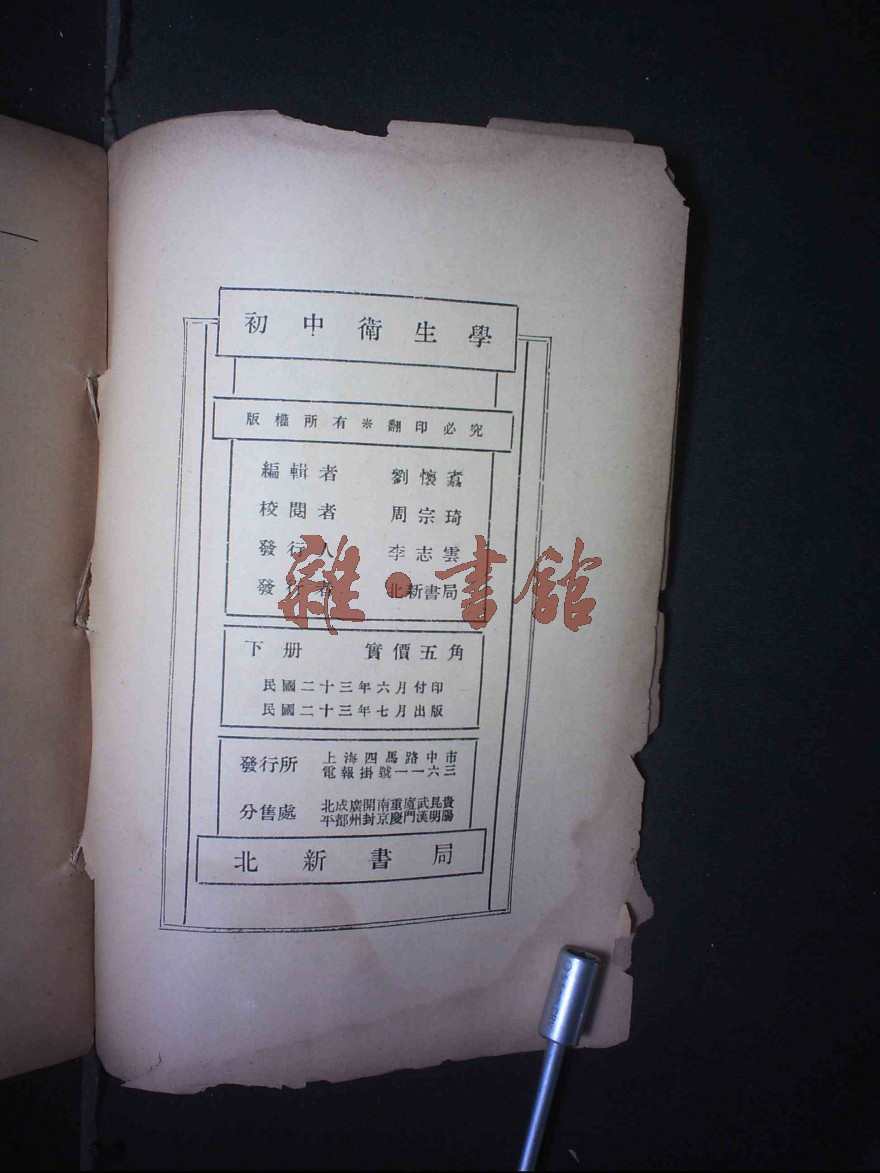 初中衛生學
版權所有※翻印必究
編輯者 劉懷
校閱者 周宗琦
發行人 李志雲
發行者 北新書局
下册 實價五角
民國二十三年六月付印
民國二十三年七月出版
發行所 上海四馬路中市
電報掛號一一六三
分售處 北成廣開南重廈武昆貴
平都州封京慶門漢明陽
北新書局
雜·書館